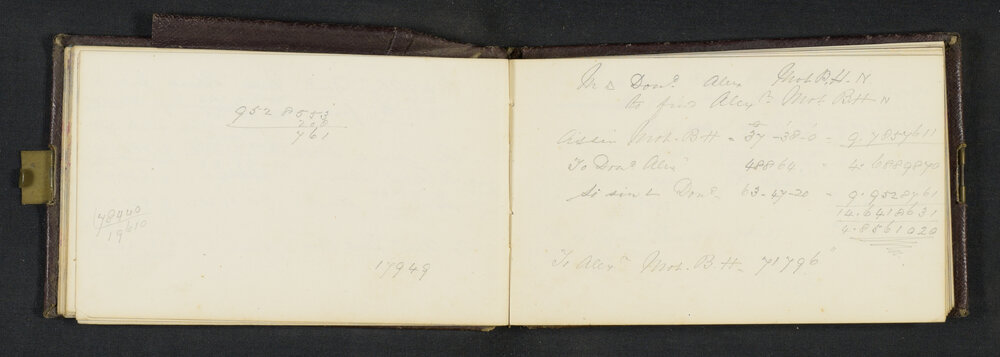 9528553
208
761
(78440
19610
17949
In Δ Dond. Alex Mot. B.H. N
to find Alexr. Mot B.H N
As sin Mot. B.H = 37-38-0 = 9.7857611
To Dond. Alex 48864 = 4.6889870
So sin L Dond. 63-47-20 = 9.9528761
14.6418631
4.8561020
"To Alexr. Mot. B.H. 71796"